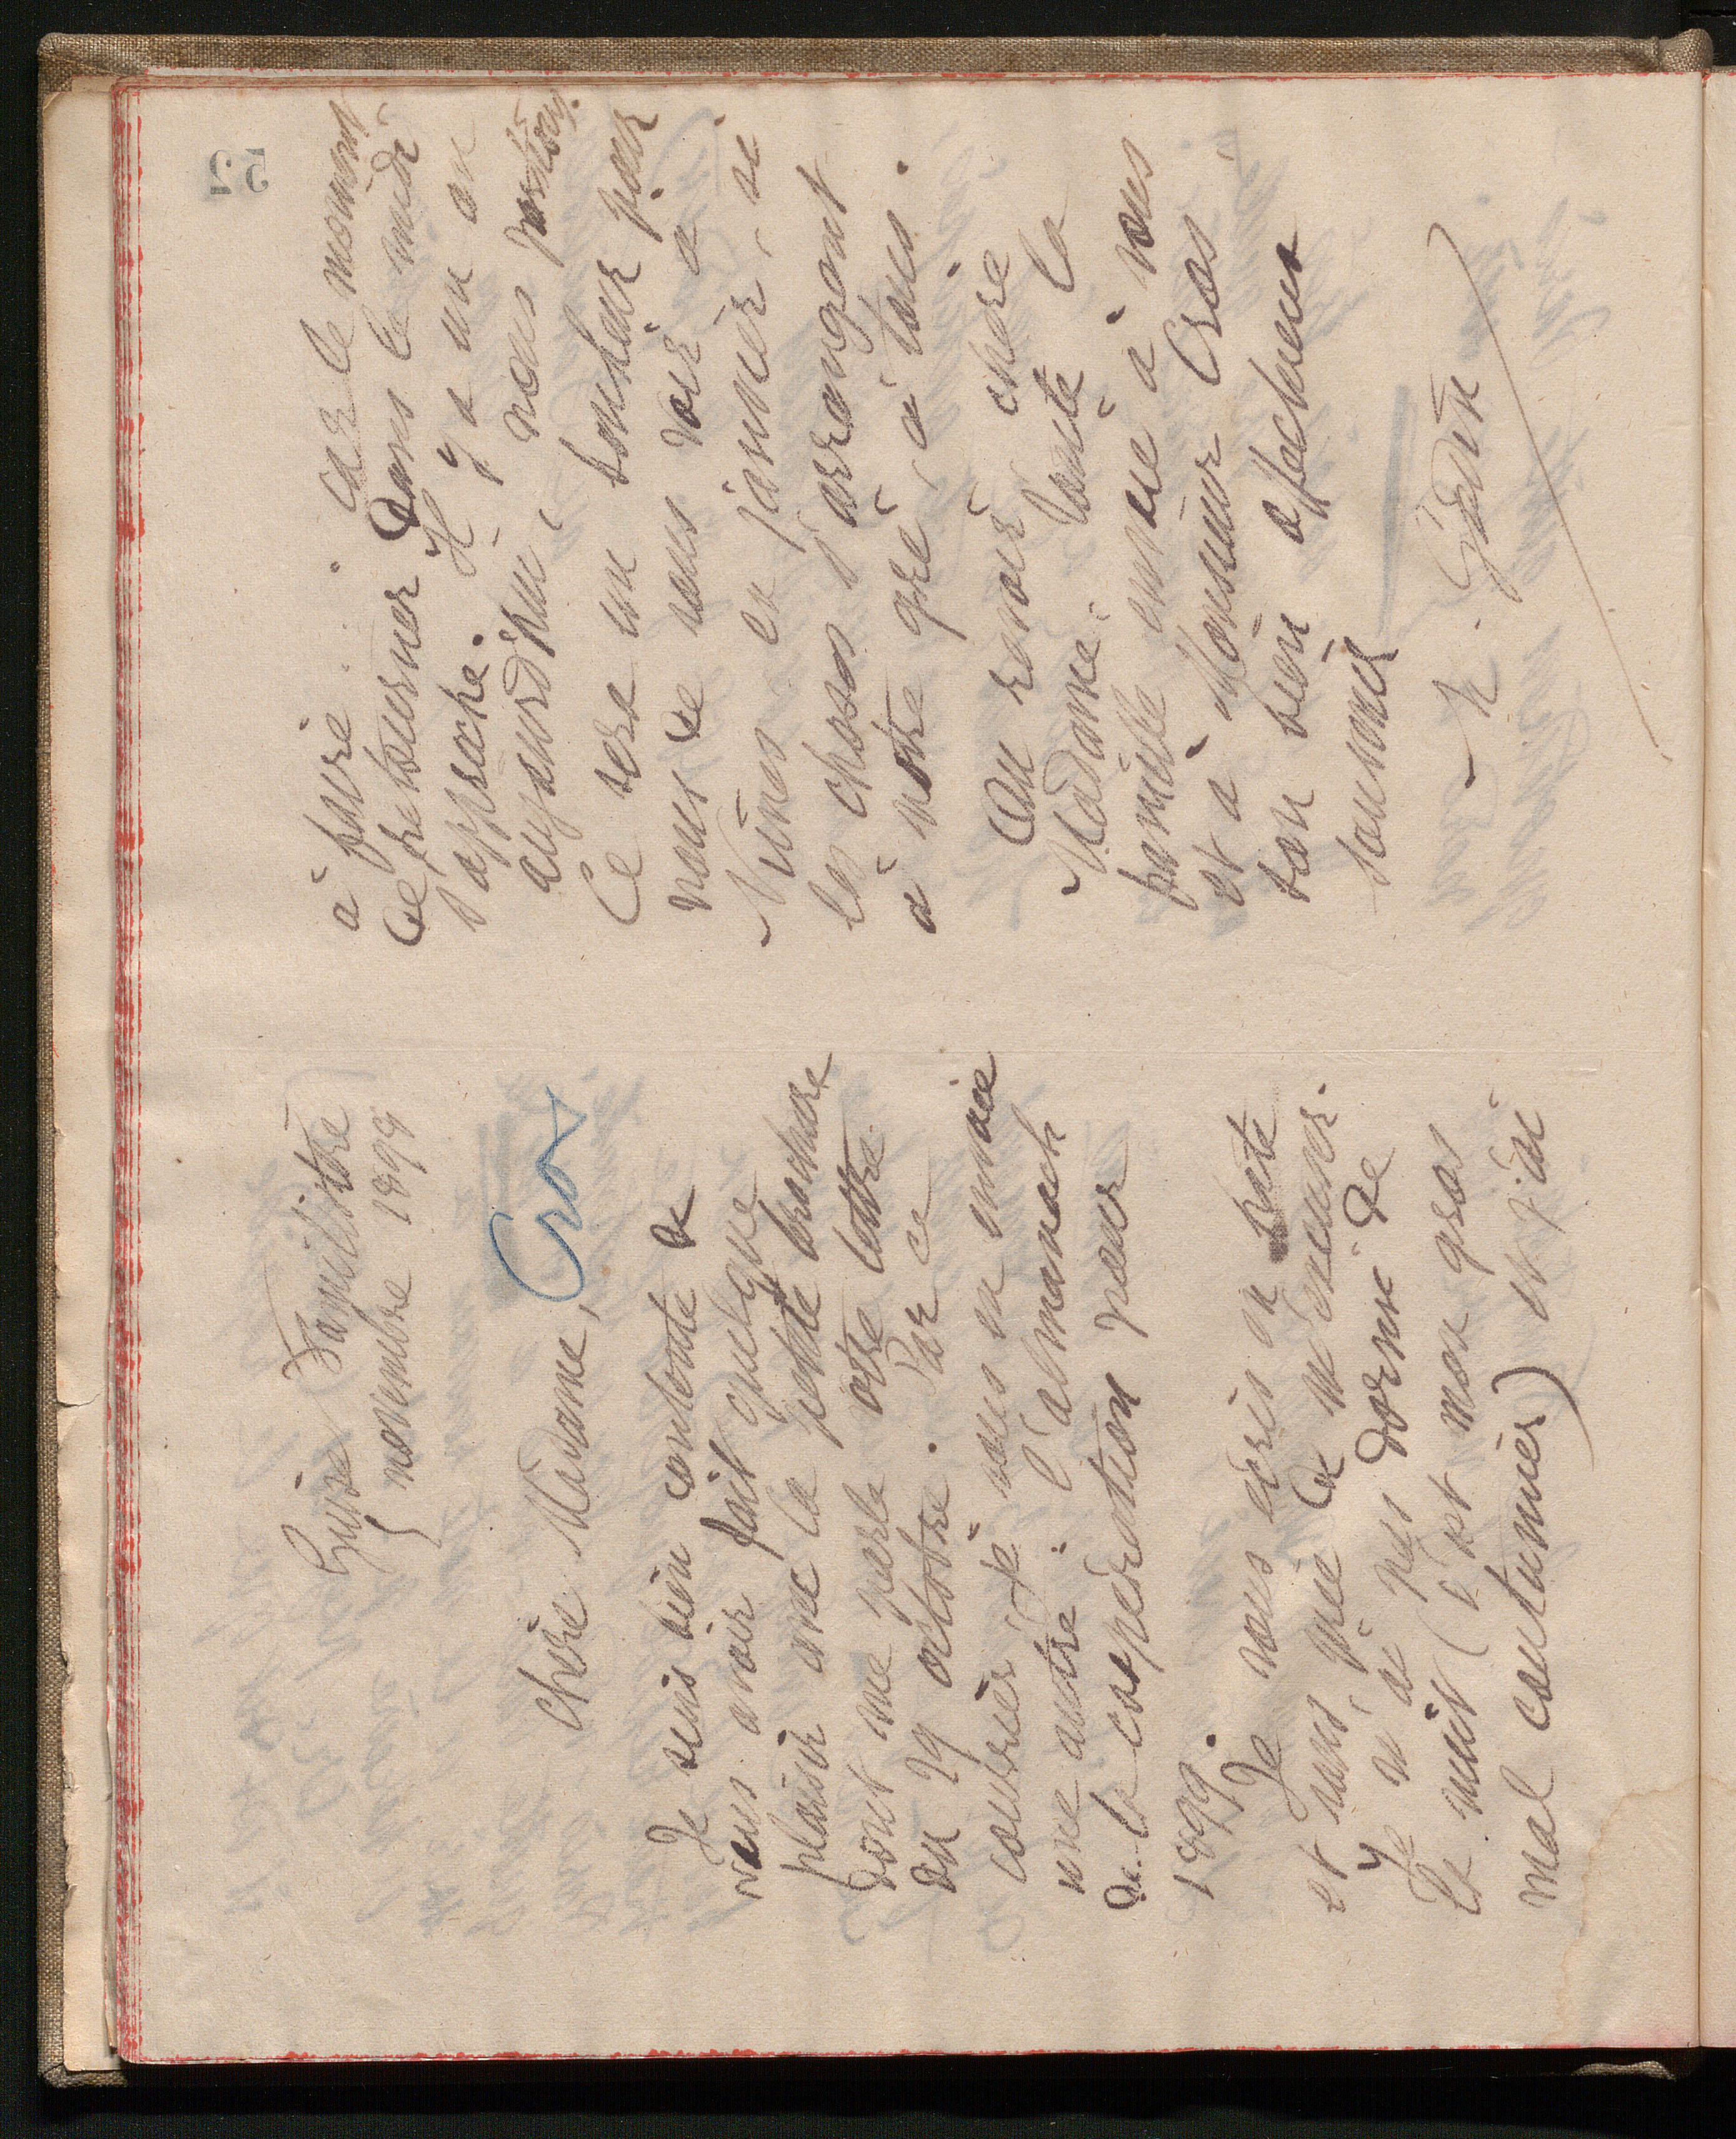 Guise Familistère
5 novembre 1899
Cros
Chère Madame,
Je suis bien contente de
vous avoir fait quelque
plaisir avec la petite brochure
dont me parle votre lettre
du 29 octobre. Par ce
courrier je vous en envoie
une autre: l'almanach
de la coopération pour
1899.
Je vous écris en hâte
et vous prie de m'excuser.
Je n'ai pas dormi de
la nuit (c'est mon gros
mal coutumier) et j'ai
à faire car le moment
de retourner dans le midi
s'approche. Il y a un an
aujourd'hui, nous partions.
Ce sera un bonheur pour
nous de vous voir à
Nîmes en janvier, si
les choses s'arrangent
à notre gré à tous.
Au revoir chère
Madame. Toute la
famille envoie à vous
et à Monsieur Cros
son bien affectueux
souvenir
M. Godin
52